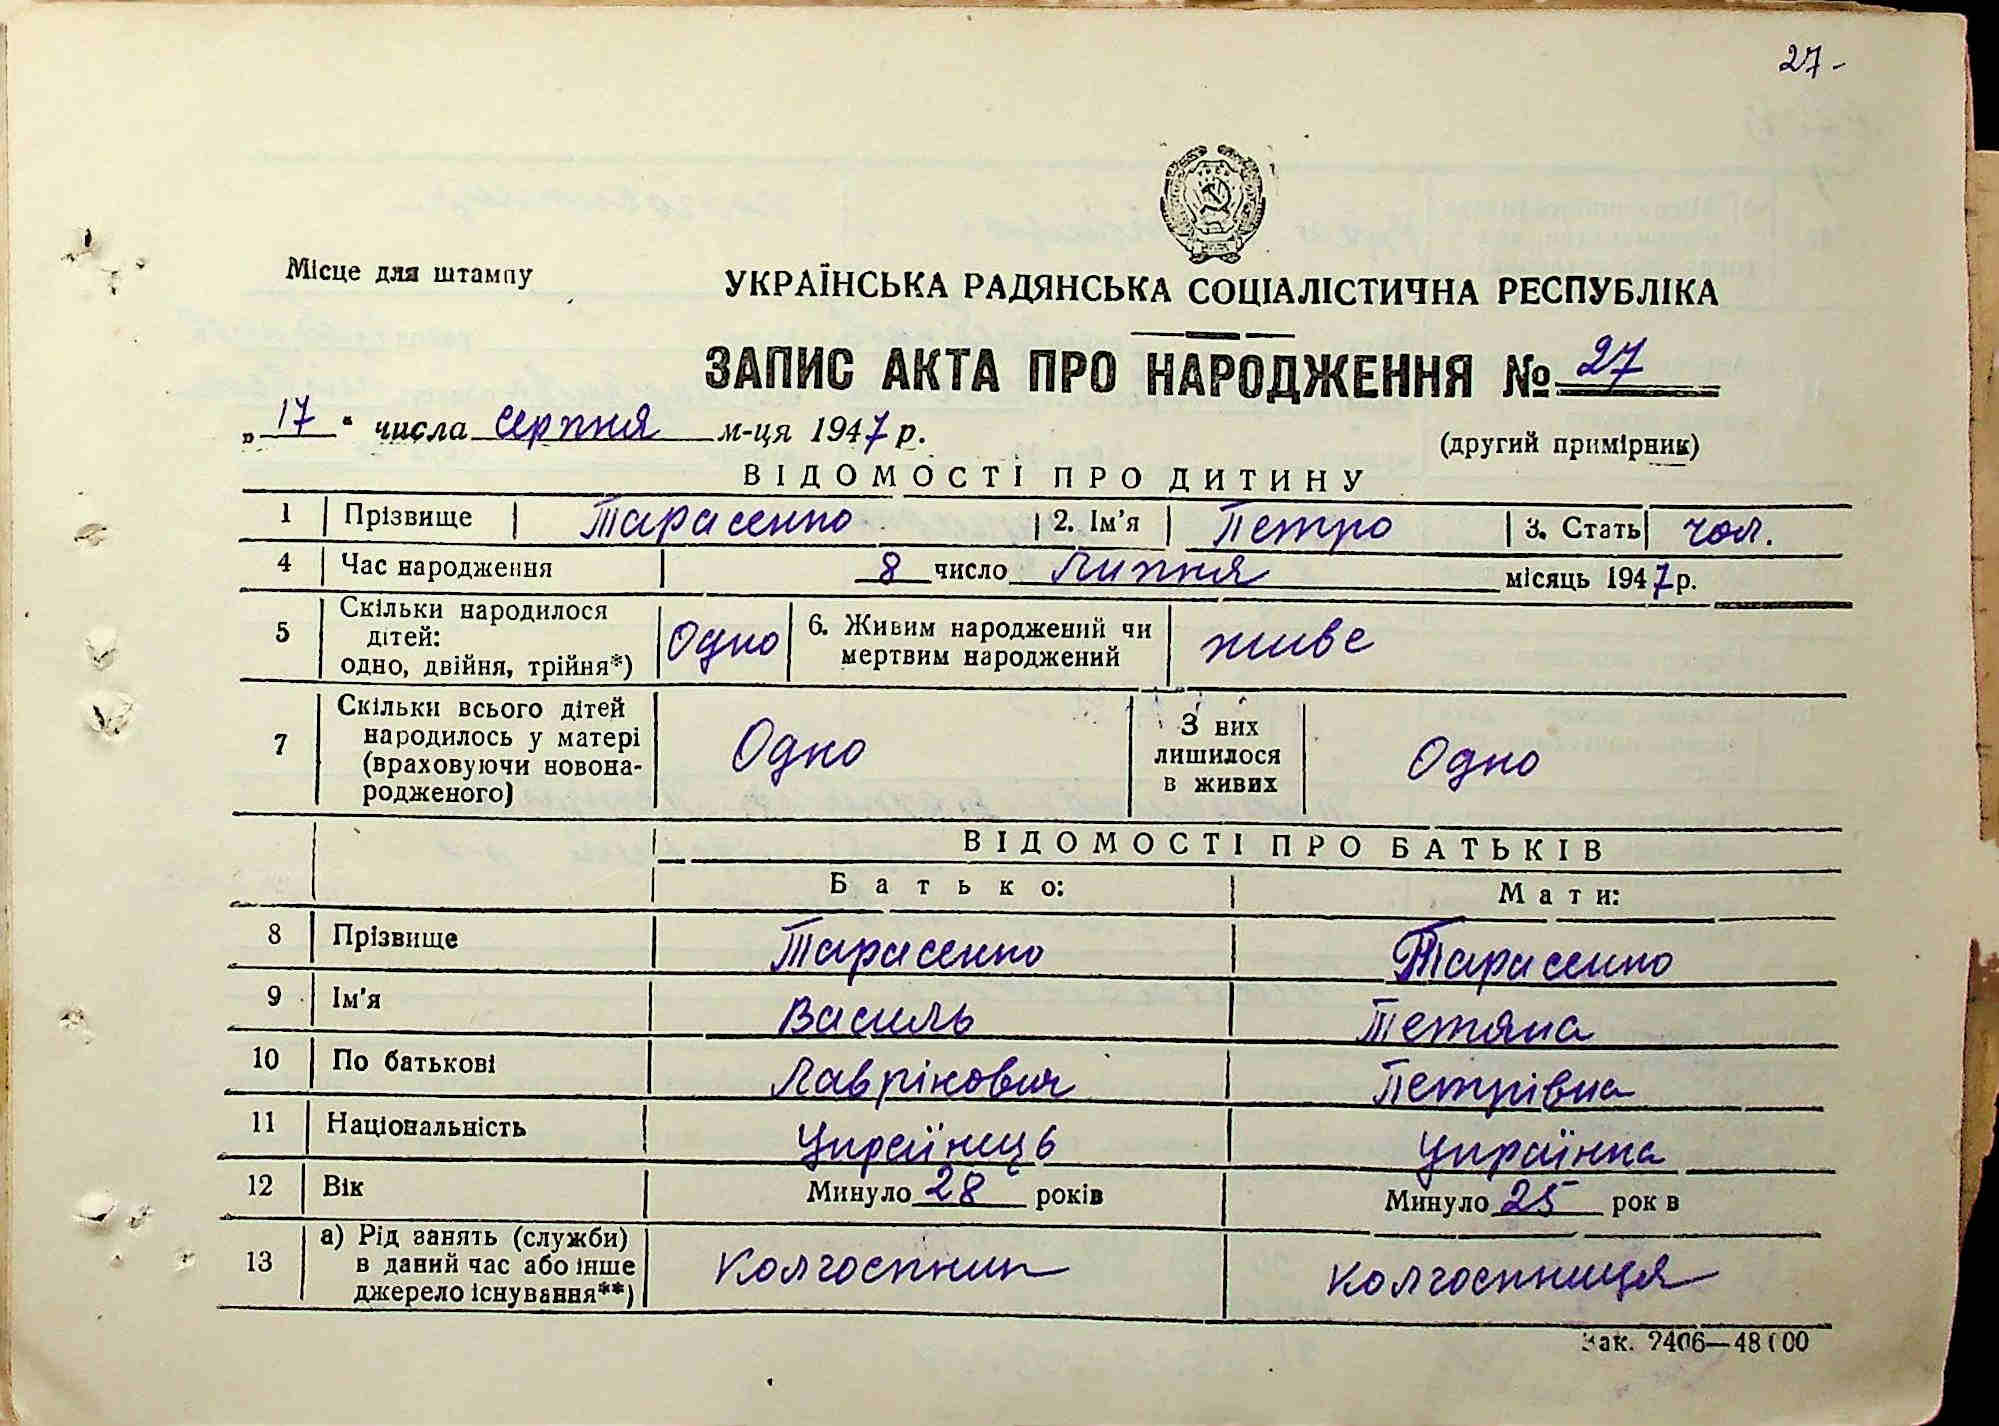 27-
Місце для штампу
УКРАЇНСЬКА РАДЯНСЬКА СОЦІАЛІСТИЧНА РЕСПУБЛІКА
ЗАПИС АКТА ПРО НАРОДЖЕННЯ № 27
„ 17 “ числа серпня м-ця 1947 р.
(другий примірник)
ВІДОМОСТІ ПРО ДИТИНУ
1 Прізвище Тарасенко 2. Ім'я Петро 3. Стать чол.
4 Час народження 8 число Липня місяць 1947 р.
5 Скільки народилося дітей: одно, двійня, трійня*) Одно 6. Живим народжений чи мертвим народжений живе
7 Скільки всього дітей народилось у матері (враховуючи новона-родженого) Одно З них лишилося в живих Одно
ВІДОМОСТІ ПРО БАТЬКІВ
Батько: Мати:
8 Прізвище Тарасенко Тарасенко
9 Ім'я Василь Тетяна
10 По батькові Лаврікович Петрівна
11 Національність Українець Українка
12 Вік Минуло 28 років Минуло 25 рок в
13 а) Рід занять (служби) в даний час або інше джерело існування**) Колгоспник Колгоспниця
Зак. 2406—48